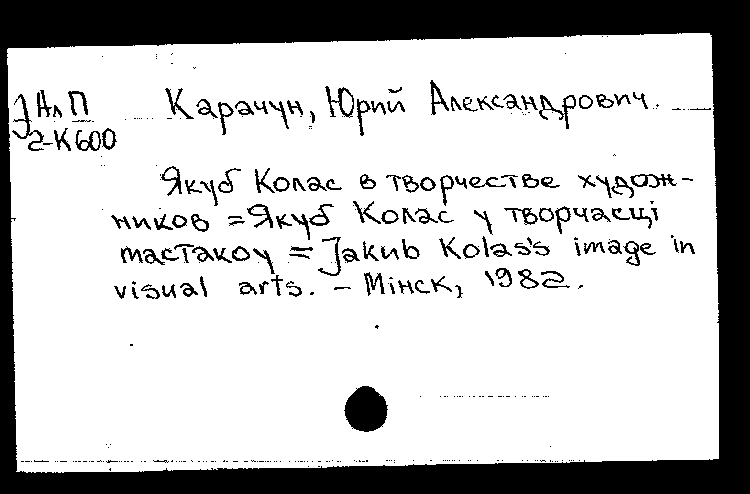 Ал П
2-К600
Карачун, Юрий Александрович.
Якуб Колас в творчестве худож-
ников = Якуб Колас у творчасці
мастакоў = Jakub Kolas's image in
visual arts. – Мінск, 1982.